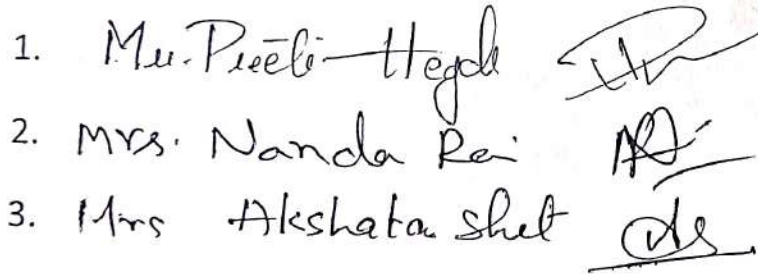 1. Mrs. Preeti Hegde
2. Mrs. Nanda Rai
3. Mrs Akshata Shet